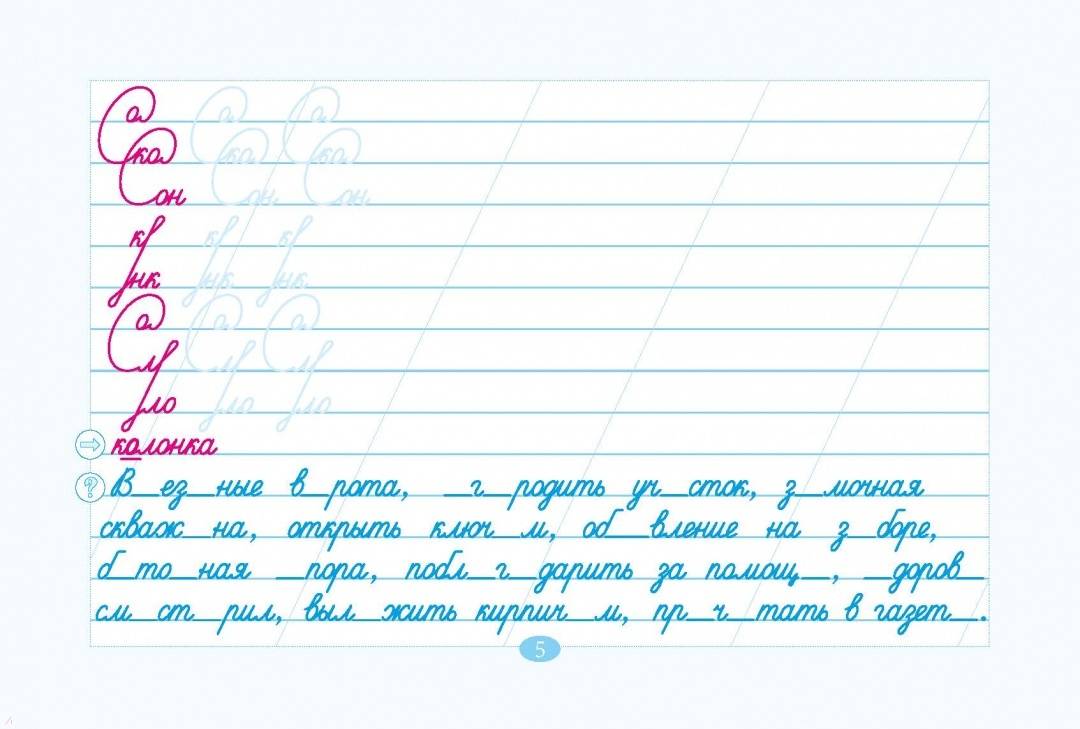 Са Са Са
Ско Ско Ско
Сон Сон Сон
к к к
нк нк нк
Са Са Са
м м м
ло ло ло
колонка
? В__ез__ные в__рота, __г__родить уч__сток, з__мочная
скваж__на, открыть ключ__м, об__вление на з__боре,
б__то__ная __пора, побл__г__дарить за помощ__, __доров__
см__ст__рил, выл__жить кирпич__м, пр__ч__тать в газет__.
5